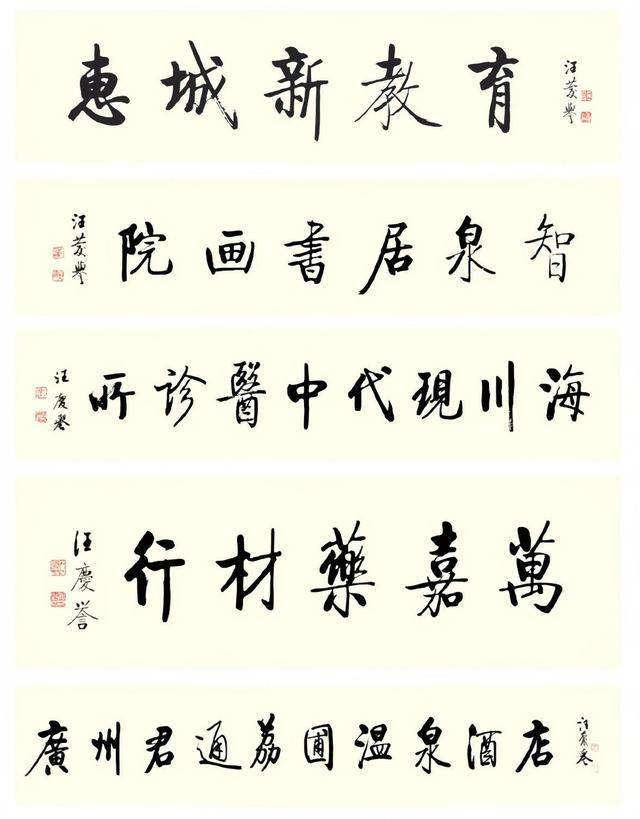 惠城新教育
汪慶譽
智泉居書画院
汪慶譽
海川現代中醫診所
汪慶譽
萬嘉藥材行
汪慶誉
廣州君通荔圃温泉酒店
汪慶誉